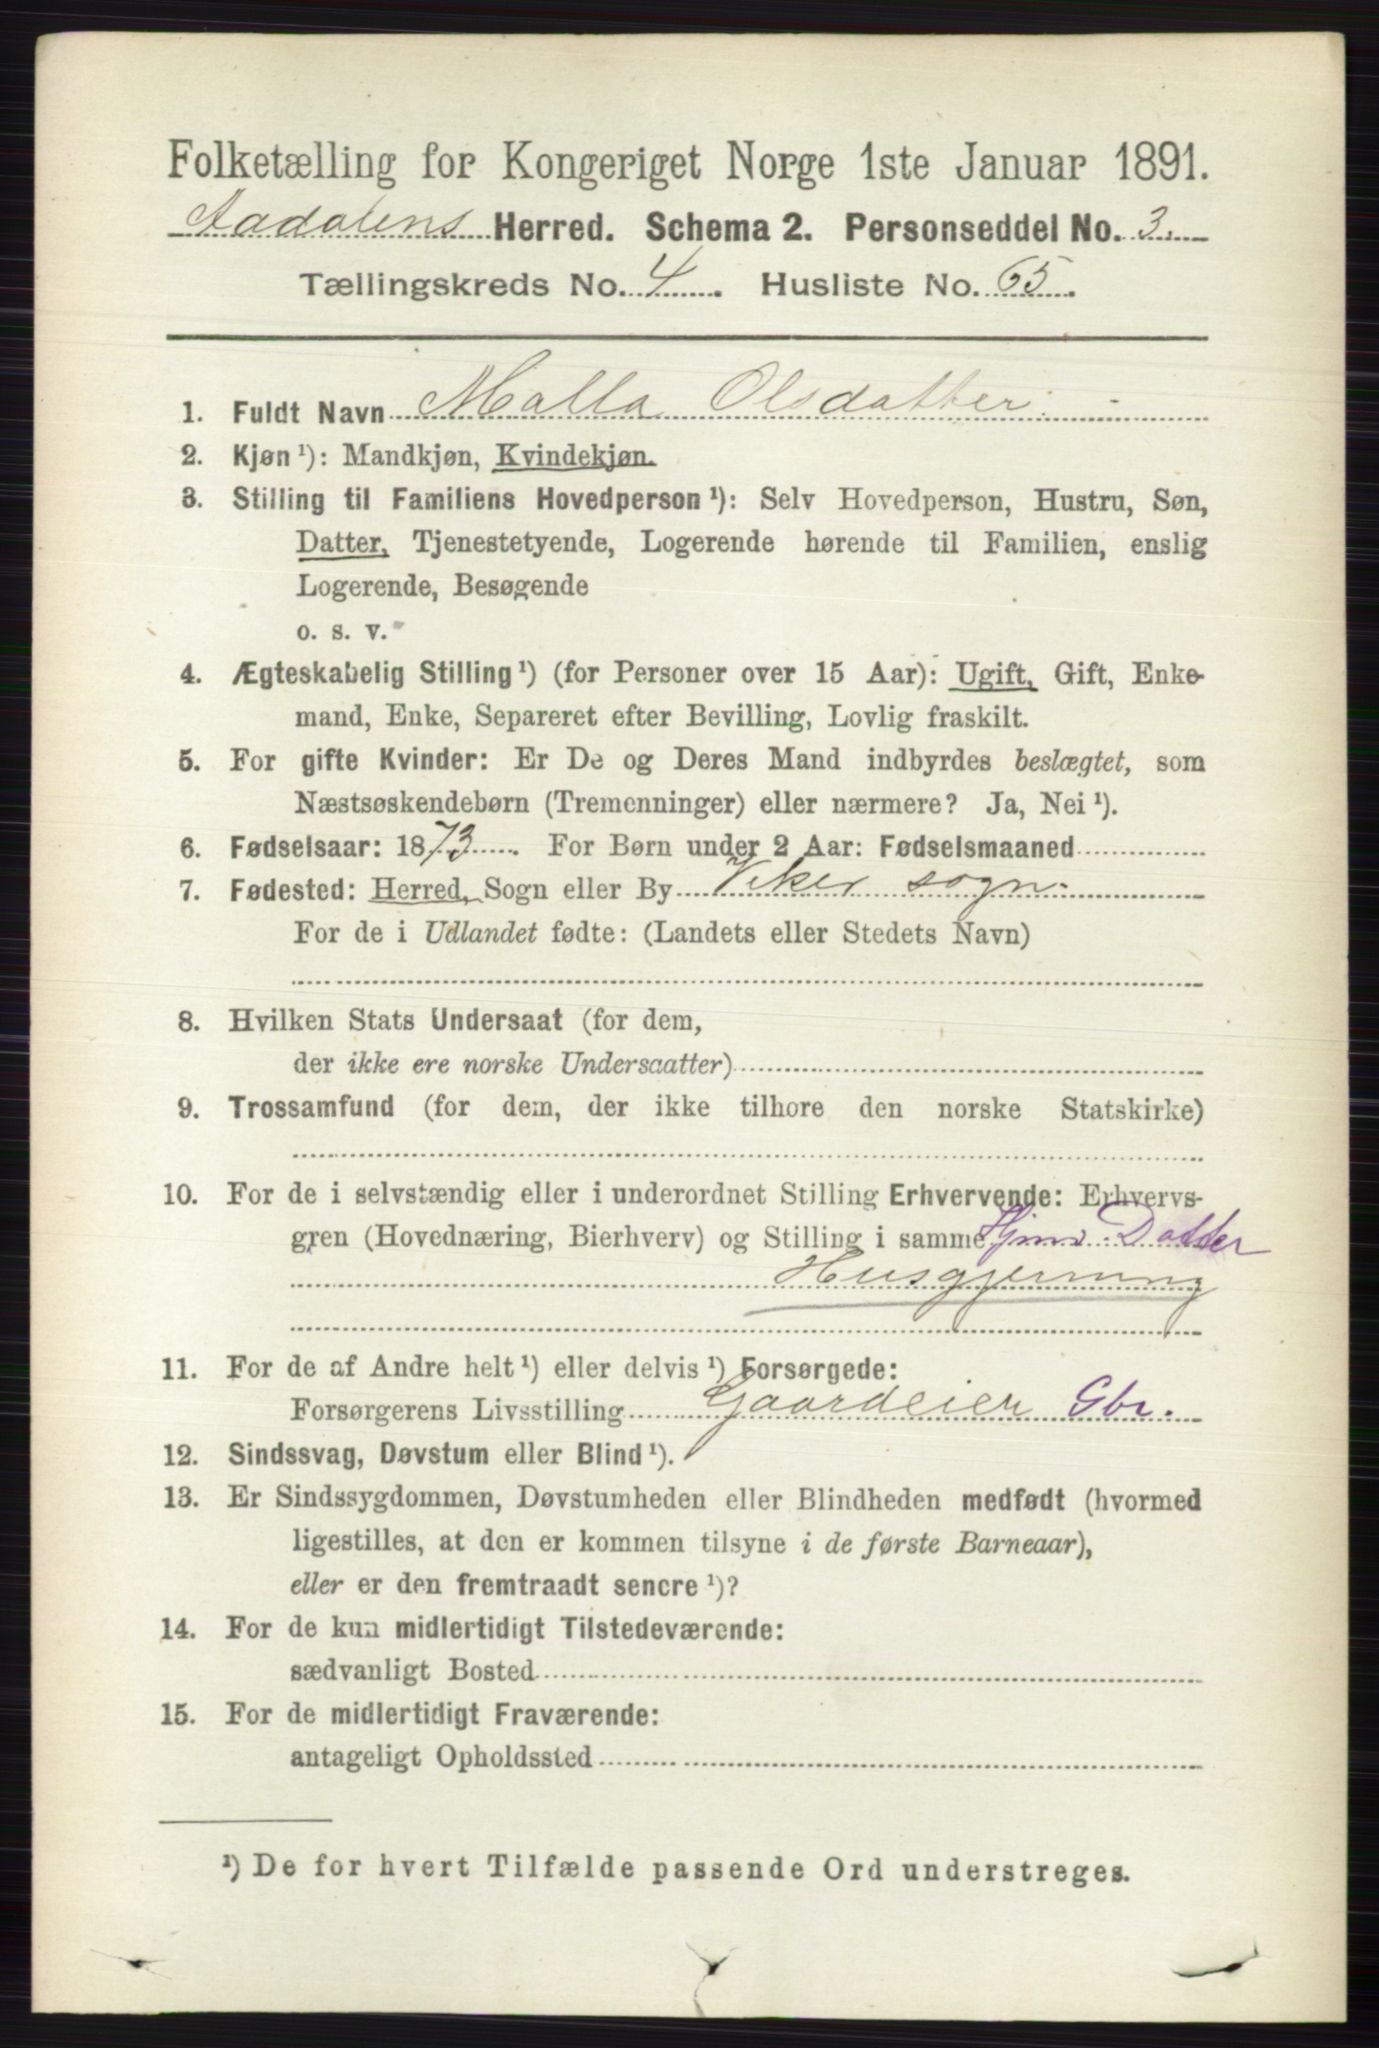 Folketælling for Kongeriget Norge 1ste Januar 1891.
Aadalens Herred. Schema 2. Personseddel No. 3.
Tællingskreds No. 4. Husliste No. 65.
1. Fuldt Navn Malla Olsdatter
2. Kjøn ¹): Mandkjøn, Kvindekjøn.
3. Stilling til Familiens Hovedperson ¹): Selv Hovedperson, Hustru, Søn,
Datter, Tjenestetyende, Logerende hørende til Familien, enslig
Logerende, Besøgende
o. s. v.
4. Ægteskabelig Stilling ¹) (for Personer over 15 Aar): Ugift, Gift, Enke-
mand, Enke, Separeret efter Bevilling, Lovlig fraskilt.
5. For gifte Kvinder: Er De og Deres Mand indbyrdes beslægtet, som
Næstsøskendebørn (Tremenninger) eller nærmere? Ja, Nei ¹).
6. Fødselsaar: 1873. For Børn under 2 Aar: Fødselsmaaned
7. Fødested: Herred, Sogn eller By Viker sogn.
For de i Udlandet fødte: (Landets eller Stedets Navn)
8. Hvilken Stats Undersaat (for dem,
der ikke ere norske Undersaatter)
9. Trossamfund (for dem, der ikke tilhøre den norske Statskirke)
10. For de i selvstændig eller i underordnet Stilling Erhvervende: Erhvervs-
gren (Hovednæring, Bierhverv) og Stilling i samme Datter
Husgjerning
11. For de af Andre helt ¹) eller delvis ¹) Forsørgede:
Forsørgerens Livsstilling Gaardeier Gbr.
12. Sindssvag, Døvstum eller Blind ¹).
13. Er Sindssygdommen, Døvstumheden eller Blindheden medfødt (hvormed
ligestilles, at den er kommen tilsyne i de første Barneaar),
eller er den fremtraadt senere ¹)?
14. For de kun midlertidigt Tilstedeværende:
sædvanligt Bosted
15. For de midlertidigt Fraværende:
antageligt Opholdssted
¹) De for hvert Tilfælde passende Ord understreges.